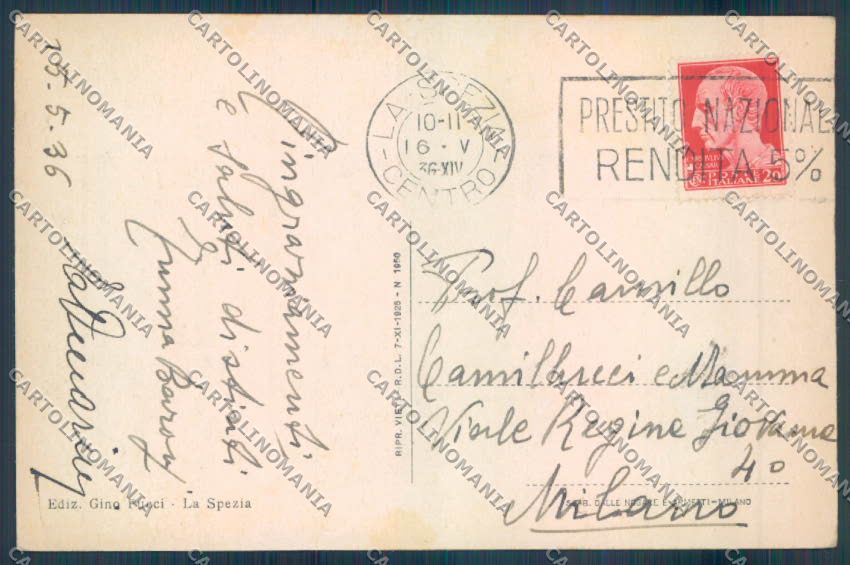 15.5.36
Ringraziamenti
e saluti distinti
LA SPEZIA
10-11
16·V
36·XIV
CENTRO
PRESTITO NAZIONALE
RENDITA 5%
POSTE ITALIANE 20
Prof. Camillo
Camillucci e Mamma
Viale Regina Giovanna
40
Milano
RIPR. VIET. - R.D.L. 7-XI-1925 - N 1950
Ediz. Gino Pucci - La Spezia
STAB. DALLE NOGARE E ARMETTI-MILANO
CARTOLINOMANIA